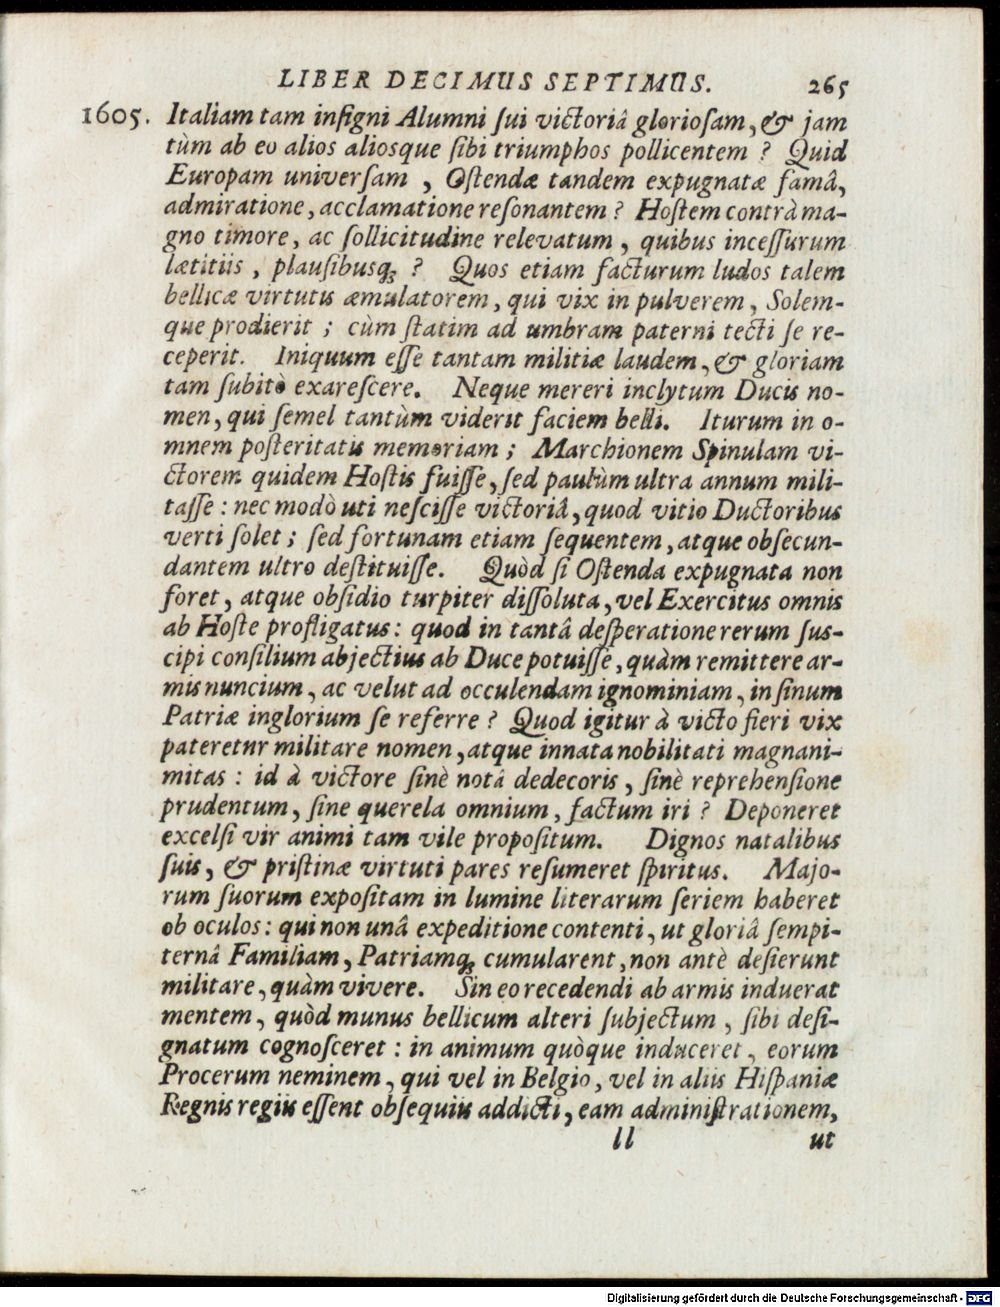 LIBER DECIMUS SEPTIMUS. 265
1605. Italiam tam inſigni Alumni ſui victoriâ glorioſam, & jam
tùm ab eo alios aliosque ſibi triumphos pollicentem ? Quid
Europam univerſam , Oſtendæ tandem expugnatæ famâ,
admiratione, acclamatione reſonantem ? Hoſtem contrà ma-
gno timore, ac ſollicitudine relevatum , quibus inceſſurum
lætitiis , plauſibusq; ? Quos etiam facturum ludos talem
bellicæ virtutis æmulatorem, qui vix in pulverem, Solem-
que prodierit ; cùm ſtatim ad umbram paterni tecti ſe re-
ceperit. Iniquum eſſe tantam militiæ laudem, & gloriam
tam ſubitò exareſcere. Neque mereri inclytum Ducis no-
men, qui ſemel tantùm viderit faciem belli. Iturum in o-
mnem poſteritatis memoriam ; Marchionem Spinulam vi-
ctorem quidem Hoſtis fuiſſe, ſed paulùm ultra annum mili-
taſſe : nec modò uti neſciſſe victoriâ, quod vitio Ductoribus
verti ſolet ; ſed fortunam etiam ſequentem, atque obſecun-
dantem ultro deſtituiſſe. Quòd ſi Oſtenda expugnata non
foret, atque obſidio turpiter diſſoluta, vel Exercitus omnis
ab Hoſte profligatus : quod in tantâ deſperatione rerum ſus-
cipi conſilium abjectius ab Duce potuiſſe, quàm remittere ar-
mis nuncium, ac velut ad occulendam ignominiam, in ſinum
Patriæ inglorium ſe referre ? Quod igitur à victo fieri vix
pateretur militare nomen, atque innata nobilitati magnani-
mitas : id à victore ſinè notâ dedecoris , ſinè reprehenſione
prudentum, ſine querela omnium, factum iri ? Deponeret
excelſi vir animi tam vile propoſitum. Dignos natalibus
ſuis, & priſtinæ virtuti pares reſumeret ſpiritus. Majo-
rum ſuorum expoſitam in lumine literarum ſeriem haberet
ob oculos : qui non unâ expeditione contenti, ut gloriâ ſempi-
ternâ Familiam, Patriamq; cumularent, non antè deſierunt
militare, quàm vivere. Sin eo recedendi ab armis induerat
mentem, quòd munus bellicum alteri ſubjectum , ſibi deſi-
gnatum cognoſceret : in animum quòque induceret, eorum
Procerum neminem, qui vel in Belgio, vel in aliis Hiſpaniæ
Regnis regiis eſſent obſequiis addicti, eam adminiſtrationem,
ll ut
Digitalisierung gefördert durch die Deutsche Forschungsgemeinschaft - DFG